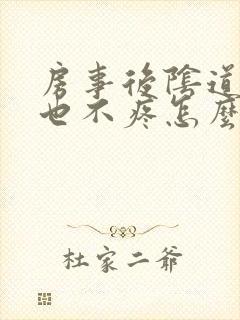 房事後陰道
也不疼怎麼
杜家二爺